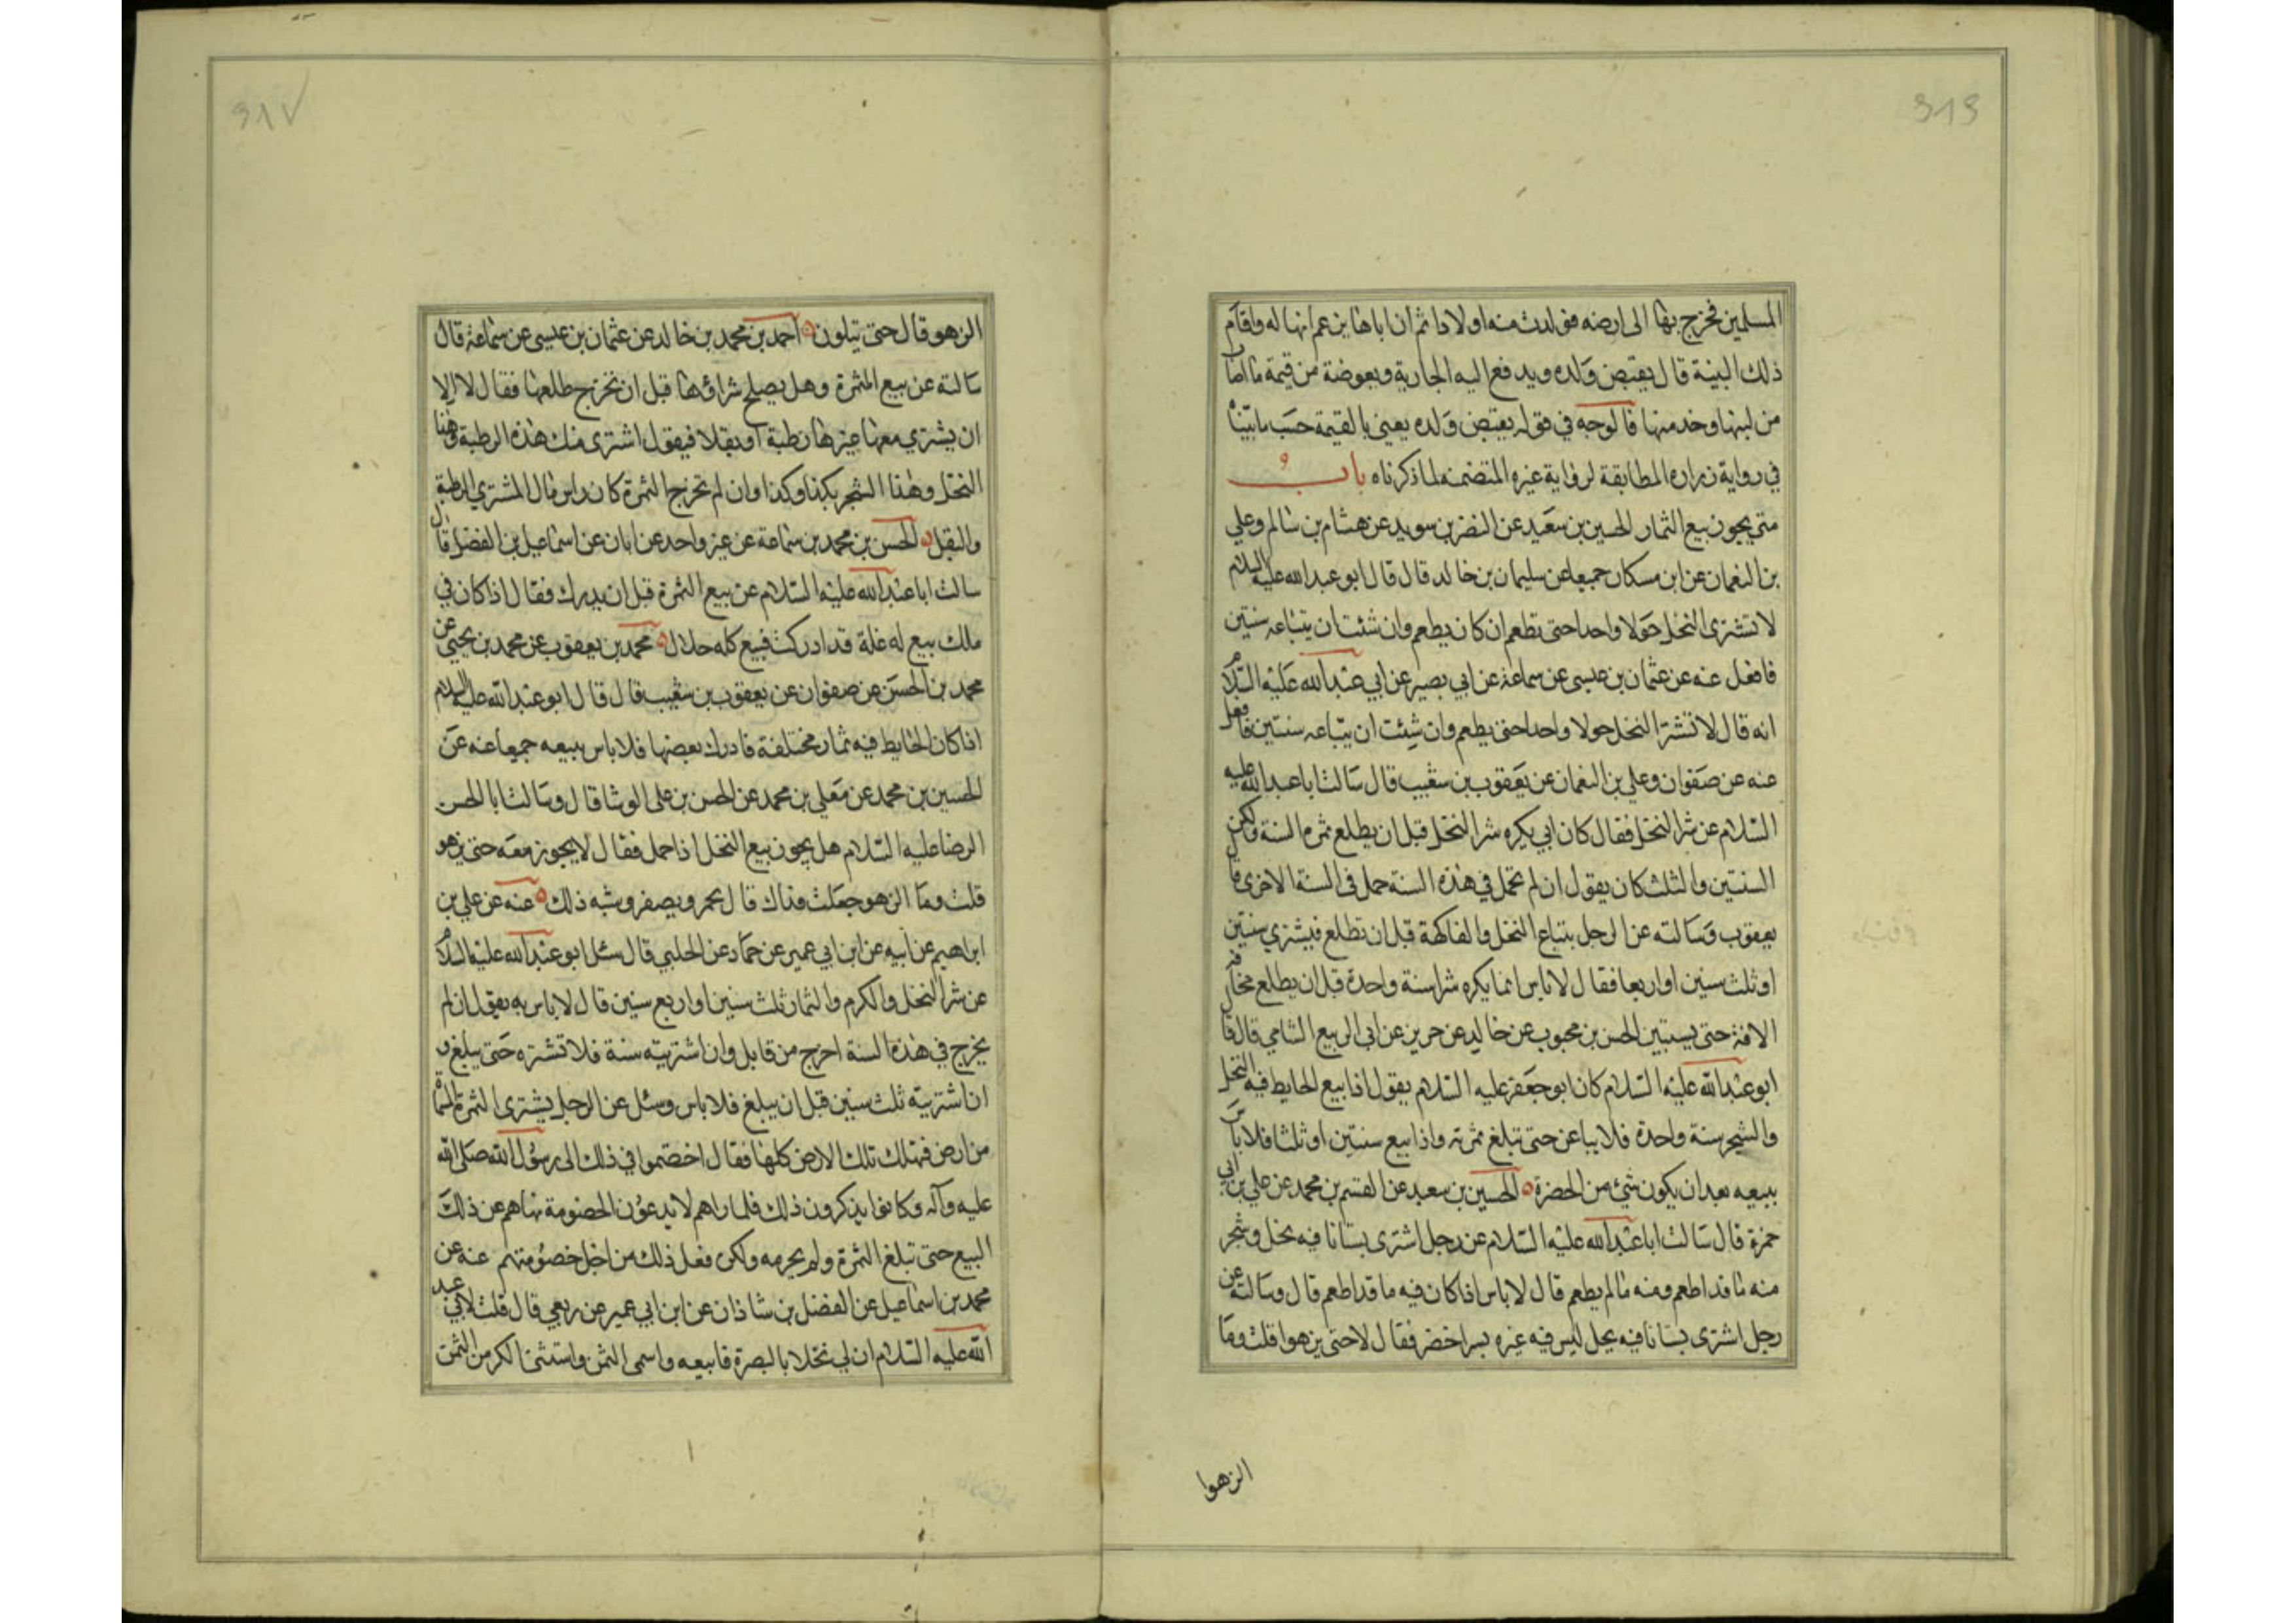 المسلمين فخرج بها الى ارضه فولدت منه اولادا ثم ان اباها يزعم انها له واقام
ذلك البينة قال يقبض ولده ويدفع اليه الجارية ويعوضه من قيمة ما اصاب
من لبنها وخدمتها فالوجه في قوله يقبض ولده يعني بالقيمة حسب ما بيناه
في رواية زرارة المطابقة لرواية غيره المتضمنه لما ذكرناه باب
متى يجوز بيع الثمار الحسين بن سعيد عن النضر بن سويد عن هشام بن سالم وعلي
بن النعمان عن ابن مسكان جميعا عن سليمان بن خالد قال قال ابو عبد الله عليه السلام
لا تشترى النخل حولا واحدا حتى تطعم ان كان يطعم وان شئت ان يتباعه سنتين
فافعل عنه عن عثمان بن عيسى عن سماعة عن ابي بصير عن ابي عبد الله عليه السلام
انه قال لا تشتر النخل حولا واحدا حتى يطعم وان شئت ان يتباعه سنتين فافعل
عنه عن صفوان وعلي بن النعمان عن يعقوب بن شعيب قال سالت ابا عبد الله عليه
السلام عن شرا النخل فقال كان ابي يكره شرا النخل قبل ان يطلع ثمره السنة ولكن
السنتين والثلث كان يقول ان لم تحمل في هذه السنة حمل في السنة الاخرى قال
يعقوب وسالته عن الرجل يبتاع النخل والفاكهة قبل ان تطلع فيشتري سنتين
او ثلث سنين او اربعا فقال لا باس انما يكره شرا سنة واحدة قبل ان يطلع مخافة
الافة حتى يستبين الحسن بن محبوب عن خالد عن حريز عن ابي الربيع الشامي قال قال
ابو عبد الله عليه السلام كان ابو جعفر عليه السلام يقول اذا بيع الحايط فيه النخل
والشجر سنة واحدة فلا يباعن حتى تبلغ ثمرته واذا بيع سنتين او ثلثا فلا باس
ببيعه بعد ان يكون شئ من الخضرة الحسين بن سعيد عن القسم بن محمد عن علي بن ابي
حمزة قال سالت ابا عبد الله عليه السلام عن رجل اشترى بستانا فيه نخل وشجر
منه ما قد اطعم ومنه ما لم يطعم قال لا باس اذا كان فيه ما قد اطعم قال وسالته عن
رجل اشترى بستانا فيه نخل ليس فيه غيره بسرا خضر فقال لا حتى يزهوا قلت وما
الزهوا
الزهو قال حتى يتلون احمد بن محمد بن خالد عن عثمان بن عيسى عن سماعة قال
سالته عن بيع الثمرة وهل يصلح شراؤها قبل ان تخرج طلعها فقال لا الا
ان يشتري معها غيرها رطبة او بقلا فيقول اشترى منك هذه الرطبة وهذا
النخل وهذا الشجر بكذا وكذا وان لم تخرج الثمرة كان راس مال المشتري الرطبة
والبقل الحسن بن محمد بن سماعة عن غير واحد عن ابان عن اسماعيل بن الفضل قال
سالت ابا عبد الله عليه السلام عن بيع الثمرة قبل ان يدرك فقال اذا كان في
ملك بيع له غلة قد ادركت فبيع كله حلال محمد بن يعقوب عن محمد بن يحيى عن
محمد بن الحسين عن صفوان عن يعقوب بن شعيب قال قال ابو عبد الله عليه السلام
اذا كان الحايط فيه ثمار مختلفة فادرك بعضها فلا باس ببيعه جميعا عنه عن
الحسين بن محمد عن معلى بن محمد عن الحسن بن على الوشا قال وسالت ابا الحسن
الرضا عليه السلام هل يجوز بيع النخل اذا حمل فقال لا يجوز معه حتى يزهو
قلت وما الزهو جعلت فداك قال يحمر ويصفر وشبه ذلك عنه عن علي بن
ابراهيم عن ابيه عن ابن ابي عمير عن حماد عن الحلبي قال سئل ابو عبد الله عليه السلام
عن شرا النخل والكرم والثمار ثلث سنين او اربع سنين قال لا باس به يقول ان لم
يخرج في هذه السنة اخرج من قابل وان اشتريته سنة فلا تشتره حتى يبلغ و
ان اشتريته ثلث سنين قبل ان يبلغ فلا باس وسئل عن الرجل يشترى الثمرة المسماة
من ارض فهلك تلك الارض كلها فقال اختصموا في ذلك الى رسول الله صلى الله
عليه وآله وكانوا يذكرون ذلك فلما راهم لا يدعون الخصومة نهاهم عن ذلك
البيع حتى تبلغ الثمرة ولم يحرمه ولكن فعل ذلك من اجل خصومتهم عنه عن
محمد بن اسماعيل عن الفضل بن شاذان عن ابن ابي عمير عن ربعي قال قلت لابي عبد
الله عليه السلام ان لي نخلا بالبصرة فابيعه واسمى الثمن واستثنى الكر من الثمن